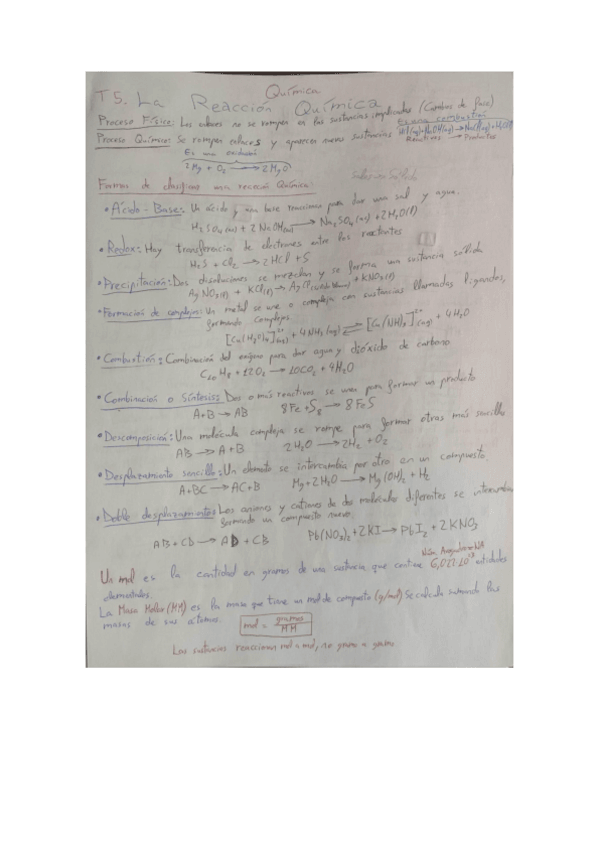 Química
T5. La Reacción Química
Proceso Físico: Los enlaces no se rompen en las sustancias implicadas (Cambios de fase)
Es una combustión
Proceso Químico: Se rompen enlaces y aparecen nuevas sustancias
Reactivos → Productos
Es una
2Mg + O₂ → 2MgO
Formas de clasificar una reacción Química:
• Ácido - Base: Un ácido y una base reaccionan para dar una sal y agua.
H₂SO₄ (aq) + 2NaOH(aq) → Na₂SO₄ (aq) + 2H₂O(l)
• Redox: Hay transferencia de electrones entre los reactantes
H₂S + Cl₂ → 2HCl + S
• Precipitación: Dos disoluciones se mezclan y se forma una sustancia sólida
AgNO₃(l) + KCl(l) → + KNO₃(l)
• Formación de complejos: Un metal se une o compleja con sustancias llamadas ligandos,
formando complejos.
+ 4NH₃ (aq) ⇌ + 4H₂O
• Combustión: Combinación del oxígeno para dar agua y dióxido de carbono
C₁₀H₈ + 12O₂ → 10CO₂ + 4H₂O
• Combinación o Síntesis: Dos o más reactivos se unen para formar un producto
A+B → AB 8Fe + S₈ → 8FeS
• Descomposición: Una molécula compleja se rompe para formar otras más sencillas
AB → A + B 2H₂O → 2H₂ + O₂
• Desplazamiento sencillo: Un elemento se intercambia por otro en un compuesto.
A+BC → AC+B Mg+2H₂O → Mg(OH)₂ + H₂
• Doble desplazamiento: Los aniones y cationes de dos moléculas diferentes se intercambian
formando un compuesto nuevo.
AB + CD → AD + CB Pb(NO₃)₂ + 2KI → PbI₂ + 2KNO₃
Núm. Avogadro=NA
Un mol es la cantidad en gramos de una sustancia que contiene 6,022·10²³ entidades
elementales.
La Masa Molar (MM) es la masa que tiene un mol de compuesto (g/mol) Se calcula sumando las
masas de sus átomos.
mol = gramos / MM
Las sustancias reaccionan mol a mol, no gramo a gramo